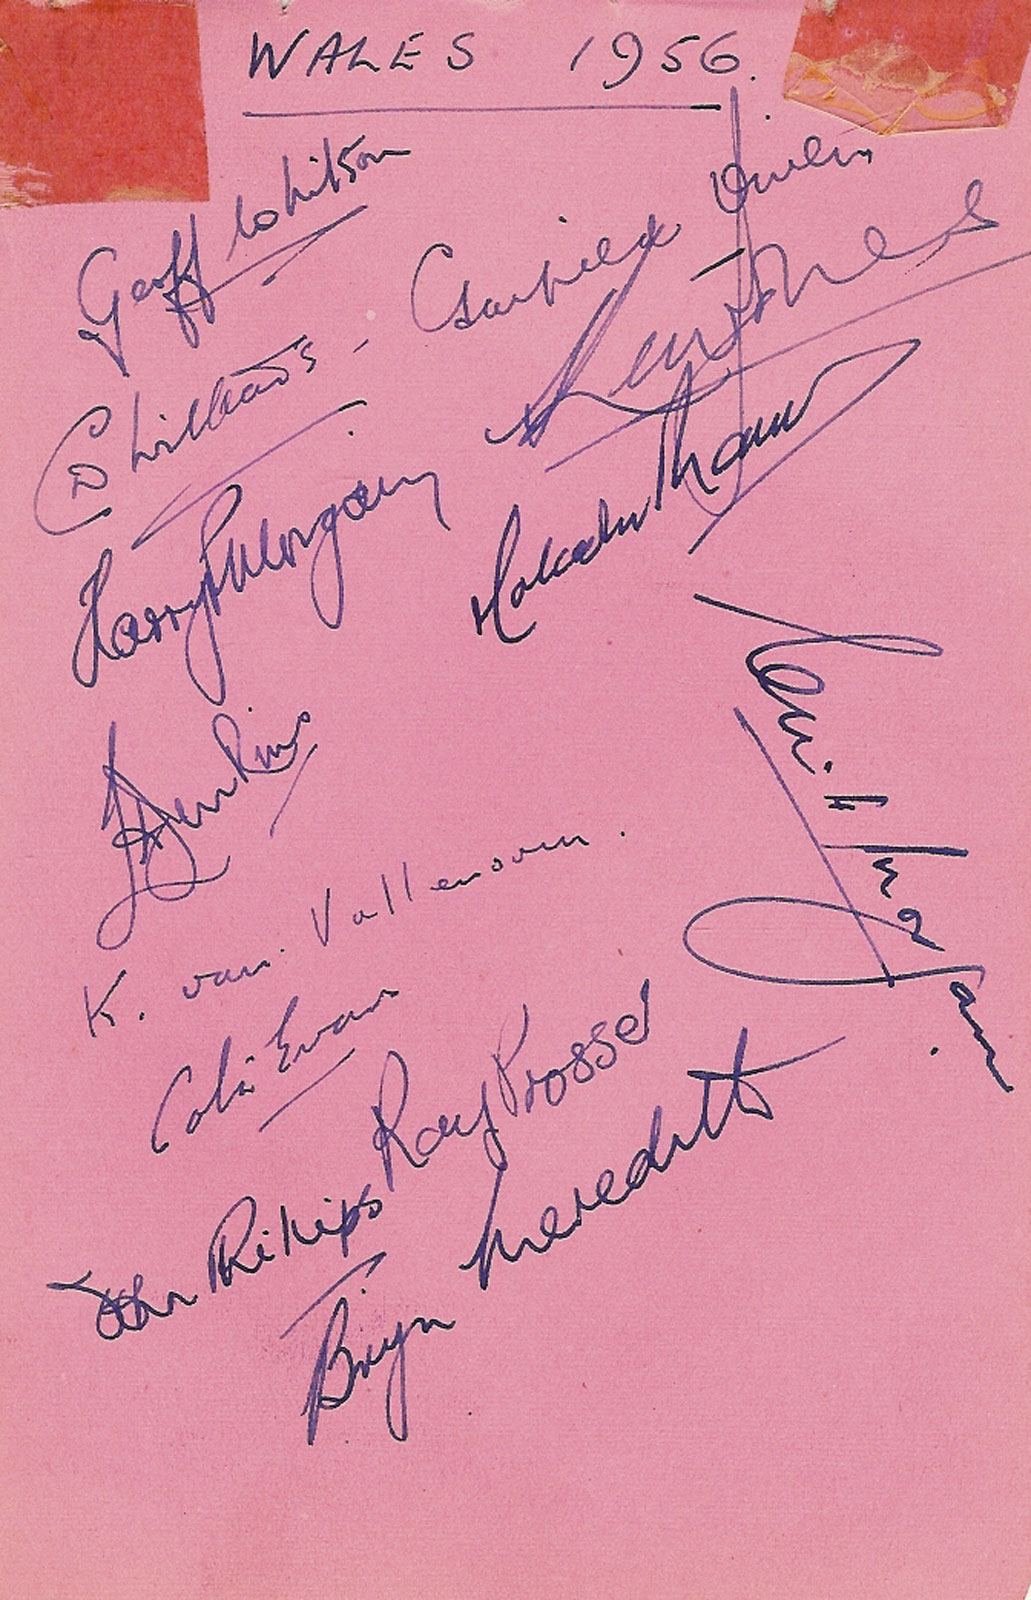 WALES 1956.
Geoff Whitson
CD Williams - Garfield Owen
Ken Jones
Harry P Morgan
Malcolm Thomas
L Jenkins
Cliff Morgan
K. van Vollenhoven.
Colin Evans
Ray Prosser
John Phillips
Bryn Meredith